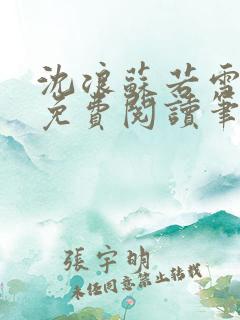 沈浪蘇若雪
免費閱讀筆
張宇明
未經同意禁止轉載